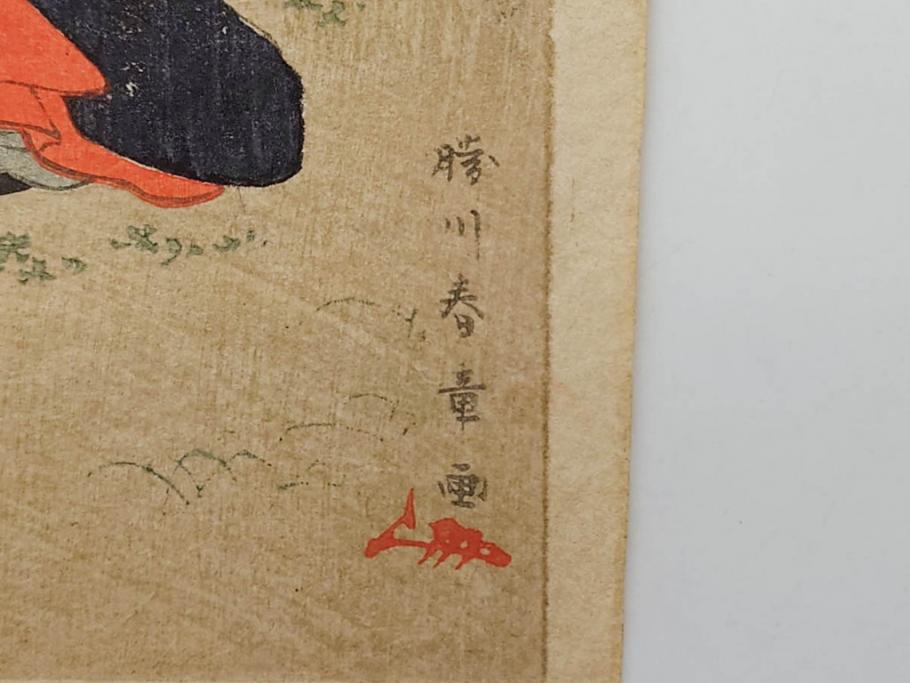 勝川春章画